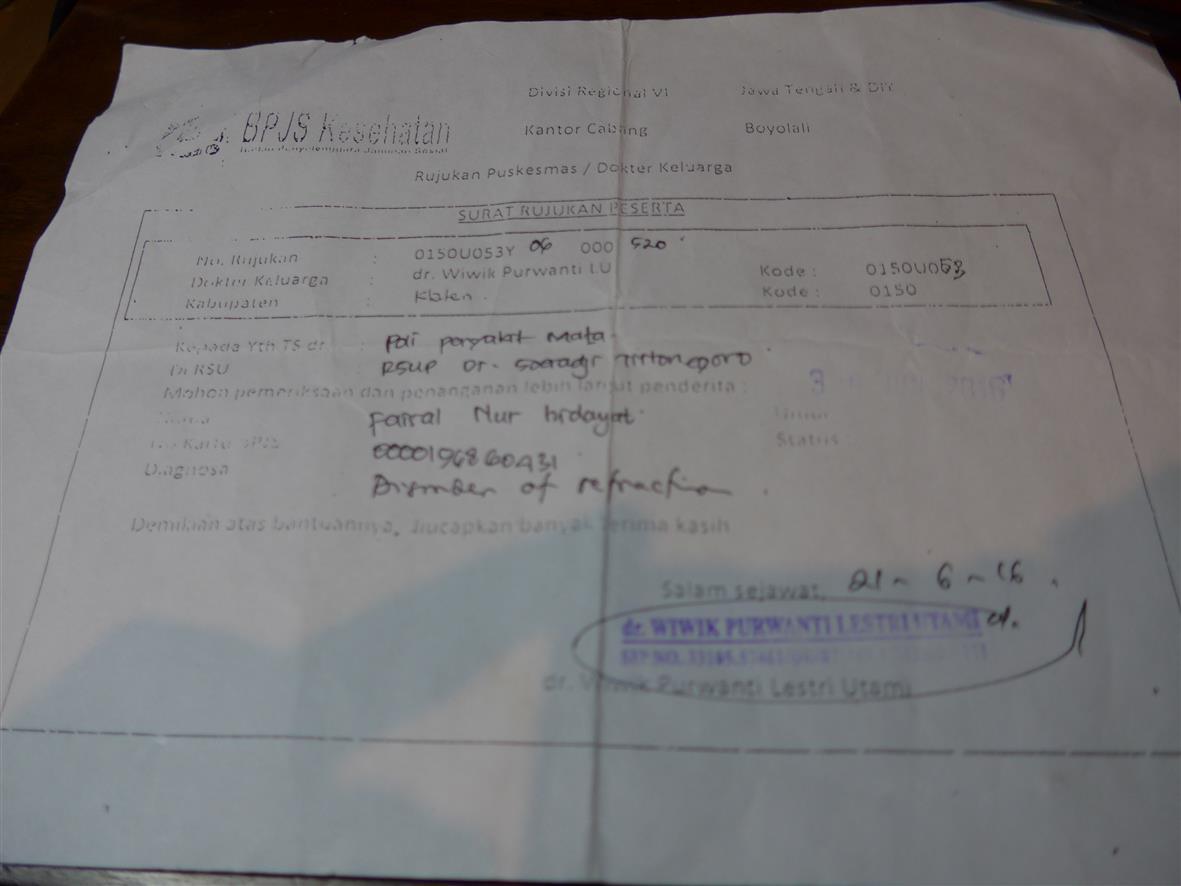 BPJS Kesehatan
Badan Penyelenggara Jaminan Sosial
Divisi Regional VI Jawa Tengah & DIY
Kantor Cabang Boyolali
Rujukan Puskesmas / Dokter Keluarga
SURAT RUJUKAN PESERTA
No. Rujukan : 0150U053Y 06 000 520
Dokter Keluarga : dr. Wiwik Purwanti LU Kode : 0150U053
Kabupaten : Klaten Kode : 0150
Kepada Yth TS dr : Poli penyakit Mata
Di RSU RSUP Dr. Soeradji Tirtonegoro
Mohon pemeriksaan dan penanganan lebih lanjut penderita :
Nama Nur hidayat Umur
No Kartu BPJS 0000196860431 Status
Diagnosa Disorder of refraction
Demikian atas bantuannya, diucapkan banyak terima kasih
Salam sejawat, 21 - 6 - 16
dr. WIWIK PURWANTI LESTRI UTAMI
SIP NO.
dr. Wiwik Purwanti Lestri Utami